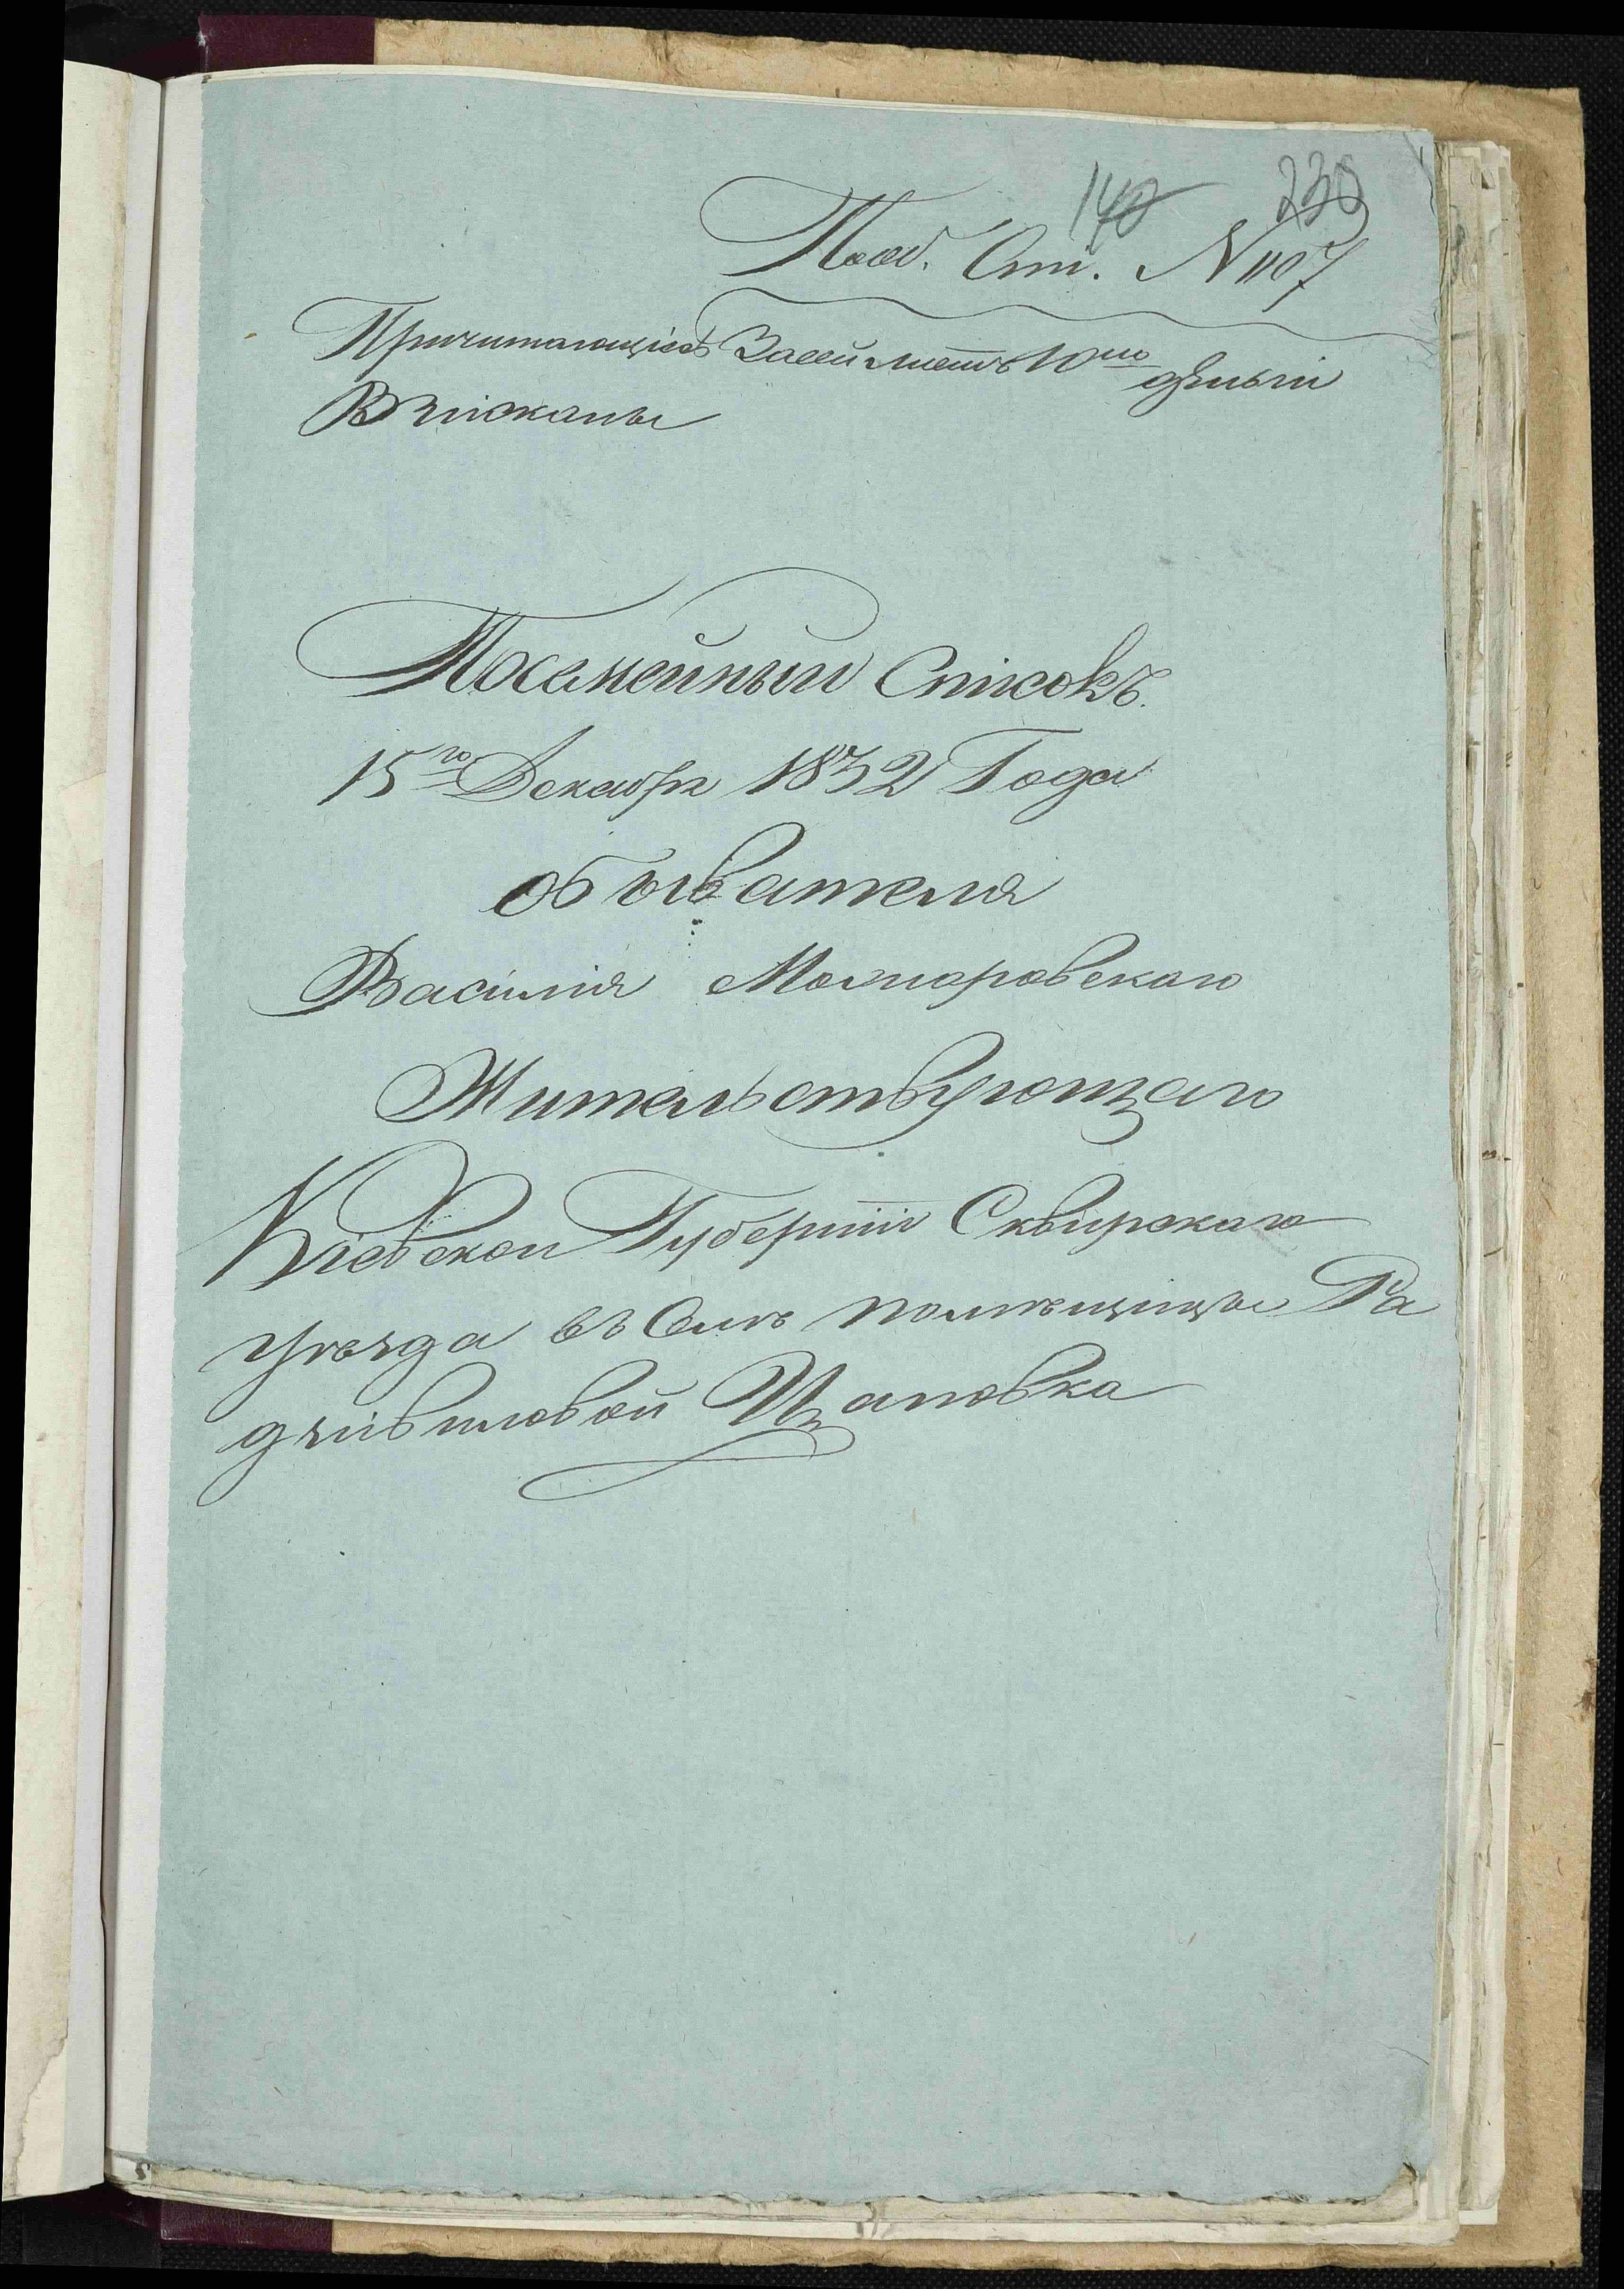 140 230
Пов. От. N 1107
Причитающіеся За сей листъ 10ть денги
Взисканы
Посемейный Списокъ.
15го Декабря 1832 Года
обывателя
Василія Моморовскаго
Жительствующаго
Кіевской Губерніи Сквирскаго
уѣзда въ Селѣ помѣщицы Ра
дзивиловой Щаповка